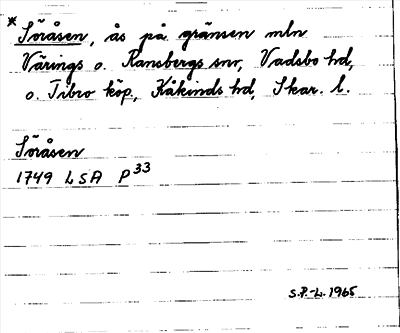 * Söråsen, ås på gränsen mln
Värings o. Ransbergs snr, Vadsbo hd,
o. Tibro köp, Kåkinds hd, Skar. l.
Söråsen
1749 LSA P33
S.P.-L. 1965